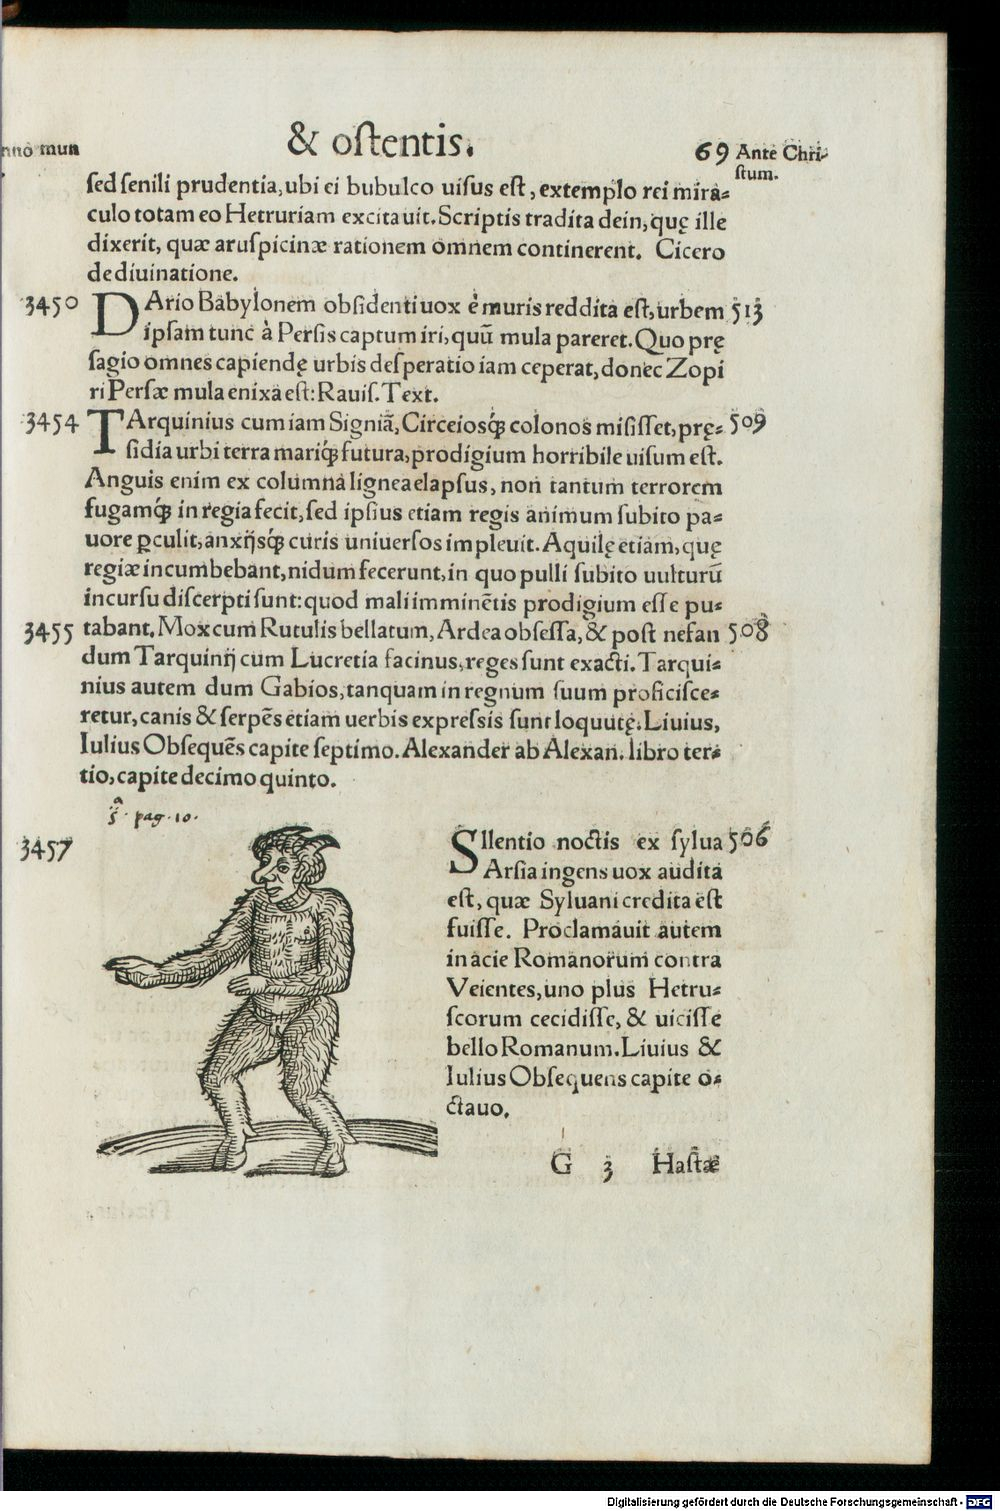 & oſtentis.
69
nno mun
Ante Chri-
ſtum.
ſed ſenili prudentia, ubi ei bubulco uiſus eſt, extemplo rei mira-
culo totam eo Hetruriam excitauit. Scriptis tradita dein, quę ille
dixerit, quæ aruſpicinæ rationem omnem continerent. Cicero
de diuinatione.
3450 DArio Babylonem obſidenti uox è muris reddita eſt, urbem 513
ipſam tunc à Perſis captum iri, quũ mula pareret. Quo prę
ſagio omnes capiendę urbis deſperatio iam ceperat, donec Zopi
ri Perſæ mula enixa eſt: Rauiſ. Text.
3454 TArquinius cum iam Signiã, Circeiosq́ꝫ colonos miſiſſet, prę- 509
ſidia urbi terra mariq́ꝫ futura, prodigium horribile uiſum eſt.
Anguis enim ex columna lignea elapſus, non tantum terrorem
fugamq́ꝫ in regia fecit, ſed ipſius etiam regis animum ſubito pa-
uore ꝑculit, anxijsq́ꝫ curis uniuerſos impleuit. Aquilę etiam, quę
regiæ incumbebant, nidum fecerunt, in quo pulli ſubito uulturũ
incurſu diſcerpti ſunt: quod mali imminẽtis prodigium eſſe pu-
3455 tabant. Mox cum Rutulis bellatum, Ardea obſeſſa, & poſt nefan 508
dum Tarquinij cum Lucretia facinus, reges ſunt exacti. Tarqui-
nius autem dum Gabios, tanquam in regnum ſuum proficiſce-
retur, canis & ſerpẽs etiam uerbis expreſsis ſunt loquutę. Liuius,
Iulius Obſequẽs capite ſeptimo. Alexander ab Alexan. libro ter-
tio, capite decimo quinto.
pag. 10.
3457
SIlentio noctis ex ſylua 506
Arſia ingens uox audita
eſt, quæ Syluani credita eſt
fuiſſe. Proclamauit autem
in acie Romanorum contra
Veientes, uno plus Hetru-
ſcorum cecidiſſe, & uiciſſe
bello Romanum. Liuius &
Iulius Obſequens capite o-
ctauo.
G 3 Haſtæ
Digitalisierung gefördert durch die Deutsche Forschungsgemeinschaft - DFG